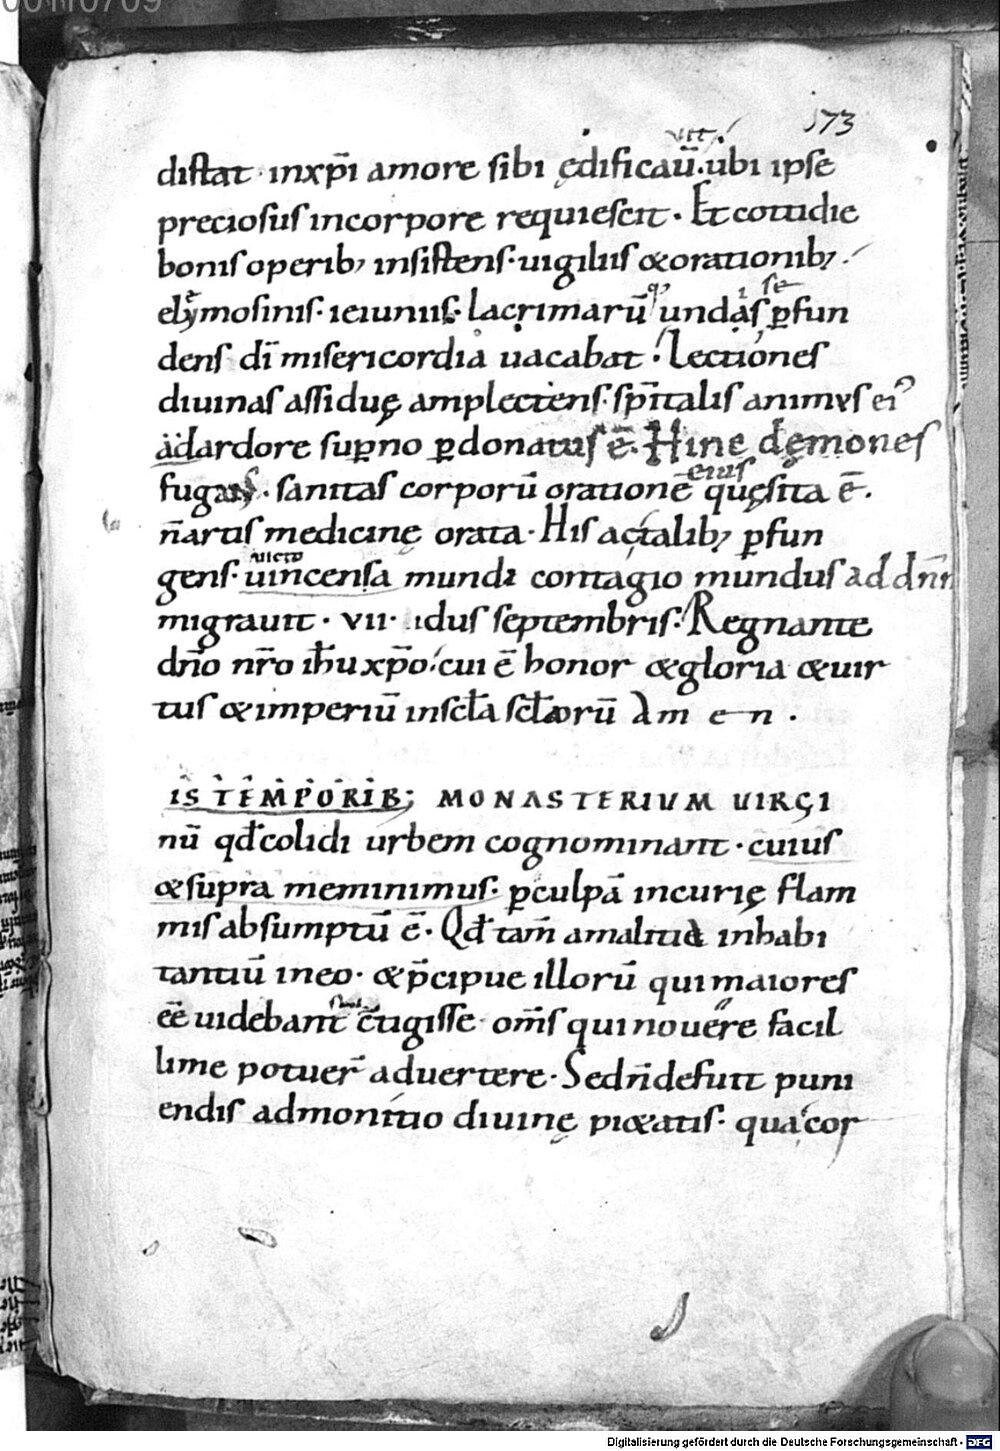 173
distat · inxp̄i amore sibi ędificaū. ubi ipse
preciosus incorpore requiescit · Et cottidie
bonis operib; insistens · uigiliis &orationib;
elymosinis · ieiuniis · lacrimarū undas p̄fun
dens dī misericordia uacabat · Lectiones
diuinas assiduę amplectens · sp̄italis animus ei
ad ardore sup̄no p̄donatus ē. Hinc dęmones
fugans · sanitas corporū oratione eius quęsita ē.
n̄ artis medicinę orata · His actalib; p̄fun
gens · uincensa mundi contagio mundus ad dn̄m
migrauit · vii · idus septembris · Regnante
dn̄o nr̄o ih̄u xp̄o · cui ē honor &gloria &uir
tus &imperiū insc̄la sc̄lorū Am e n .
IS TEMPORIB; MONASTERIUM UIRGI
nū qđ colidi urbem cognominant · cuius
&supra meminimus · p̄culpā incurię flam
mis absumptū ē · Qđ tam̄ amalitia inhabi
tantiū ineo · &p̄cipue illorū qui maiores
eē uidebant c̄tigisse · om̄s qui nouere facil
lime potuer̄ aduertere · Sed n̄ defuit puni
endis admonitio diuinę pi&atis · qua cor
Digitalisierung gefördert durch die Deutsche Forschungsgemeinschaft - DFG